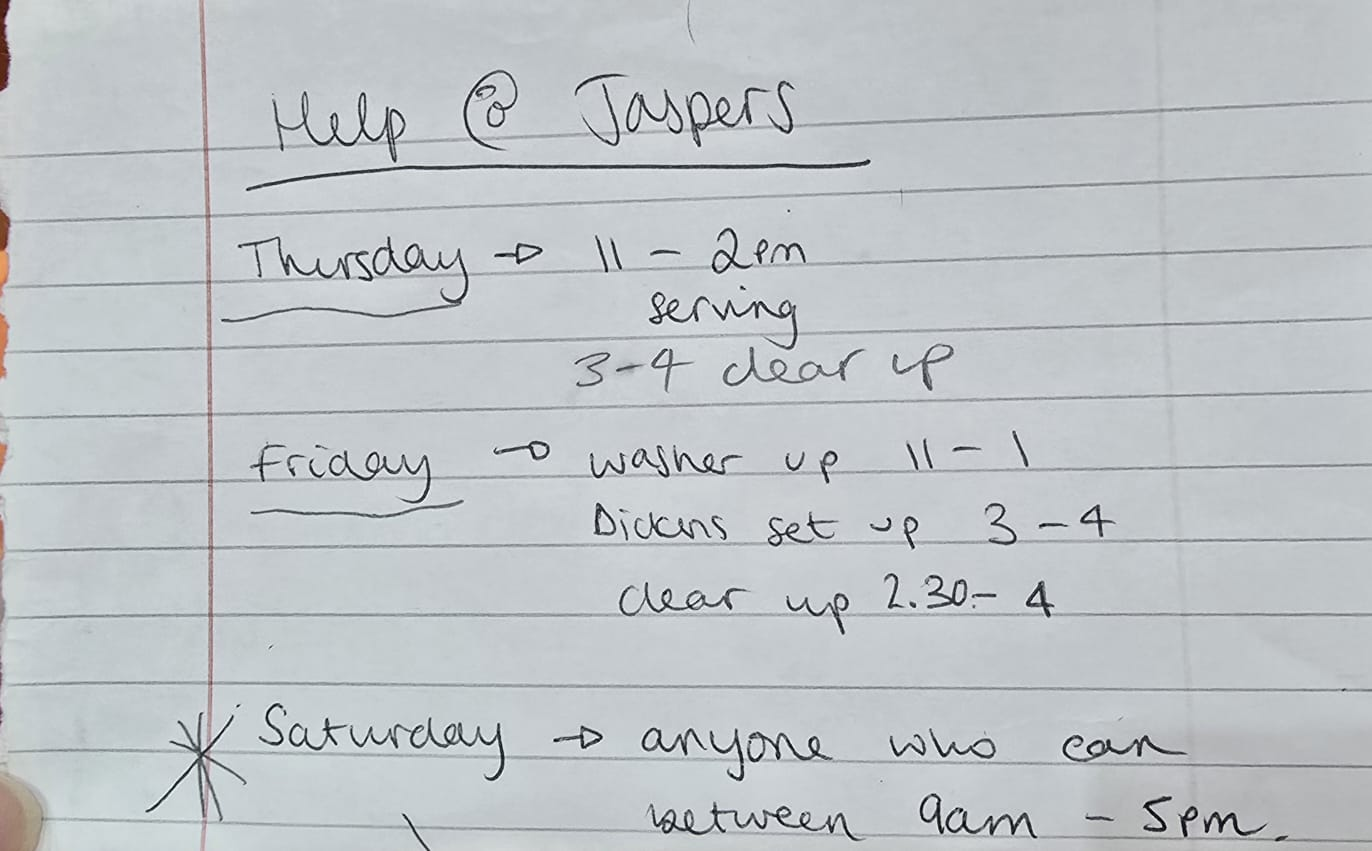 Help @ Jaspers
Thursday → 11 - 2pm
serving
3-4 clear up
Friday → washer up 11 - 1
Dickens set up 3 - 4
clear up 2.30 - 4
* Saturday → anyone who can
between 9am - 5pm.